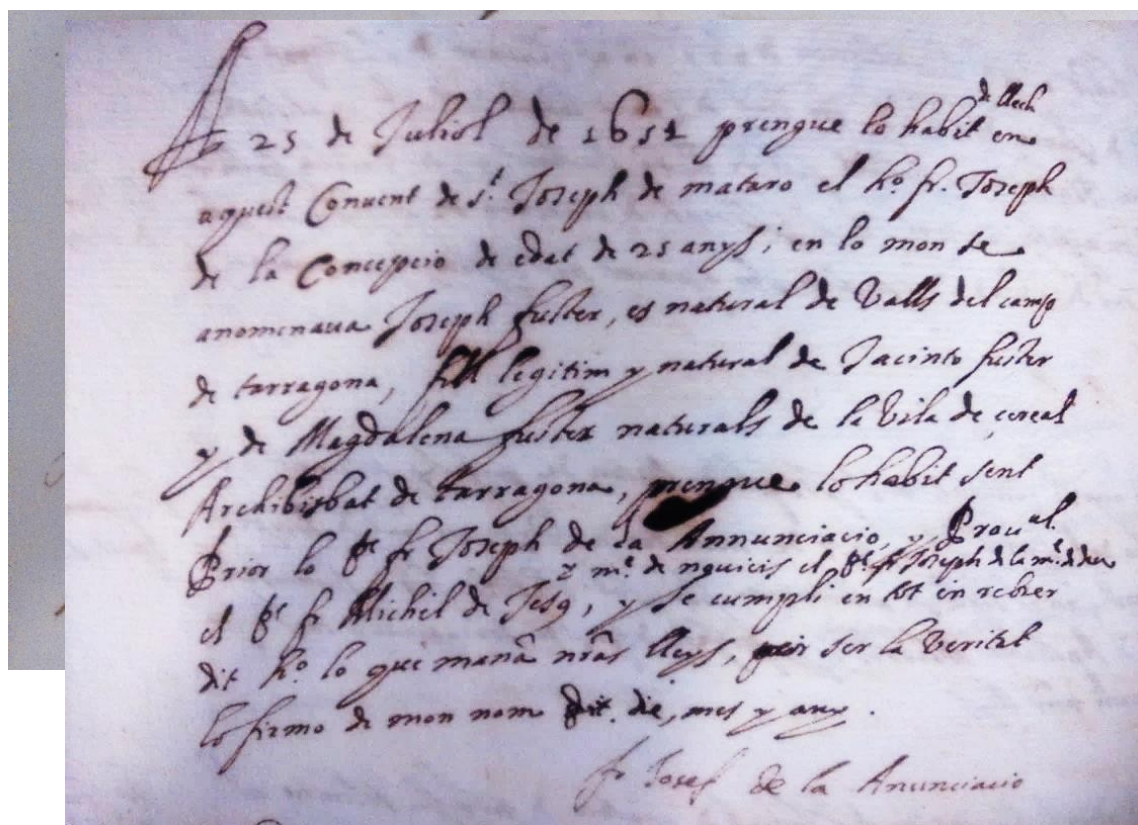 de llech
A 25 de Juliol de 1651 prengue lo habit en
aquest Convent de st. Joseph de mataro el ho. fr. Joseph
de la Concepcio de edat de 25 anys; en lo mon se
anomenava Joseph fuster, es natural de Valls del camp
de tarragona, fill legitim y natural de Jacinto fuster
y de Magdalena fuster naturals de la Vila de çereal
Archibisbat de tarragona, prengue lo habit sent
Prior lo Pe. fr Joseph de la Annunciacio, y Proual.
y me. de nouicis el Pe. fr Joseph de la me. de deu
el Pe. fr Michel de Jesq, y se cumpli en tot en rebrer
dit ho. lo que manā nrās lleys, per ser la veritat
lo firmo de mon nom dit. die, mes y any.
fr Josef de la Anunciacio